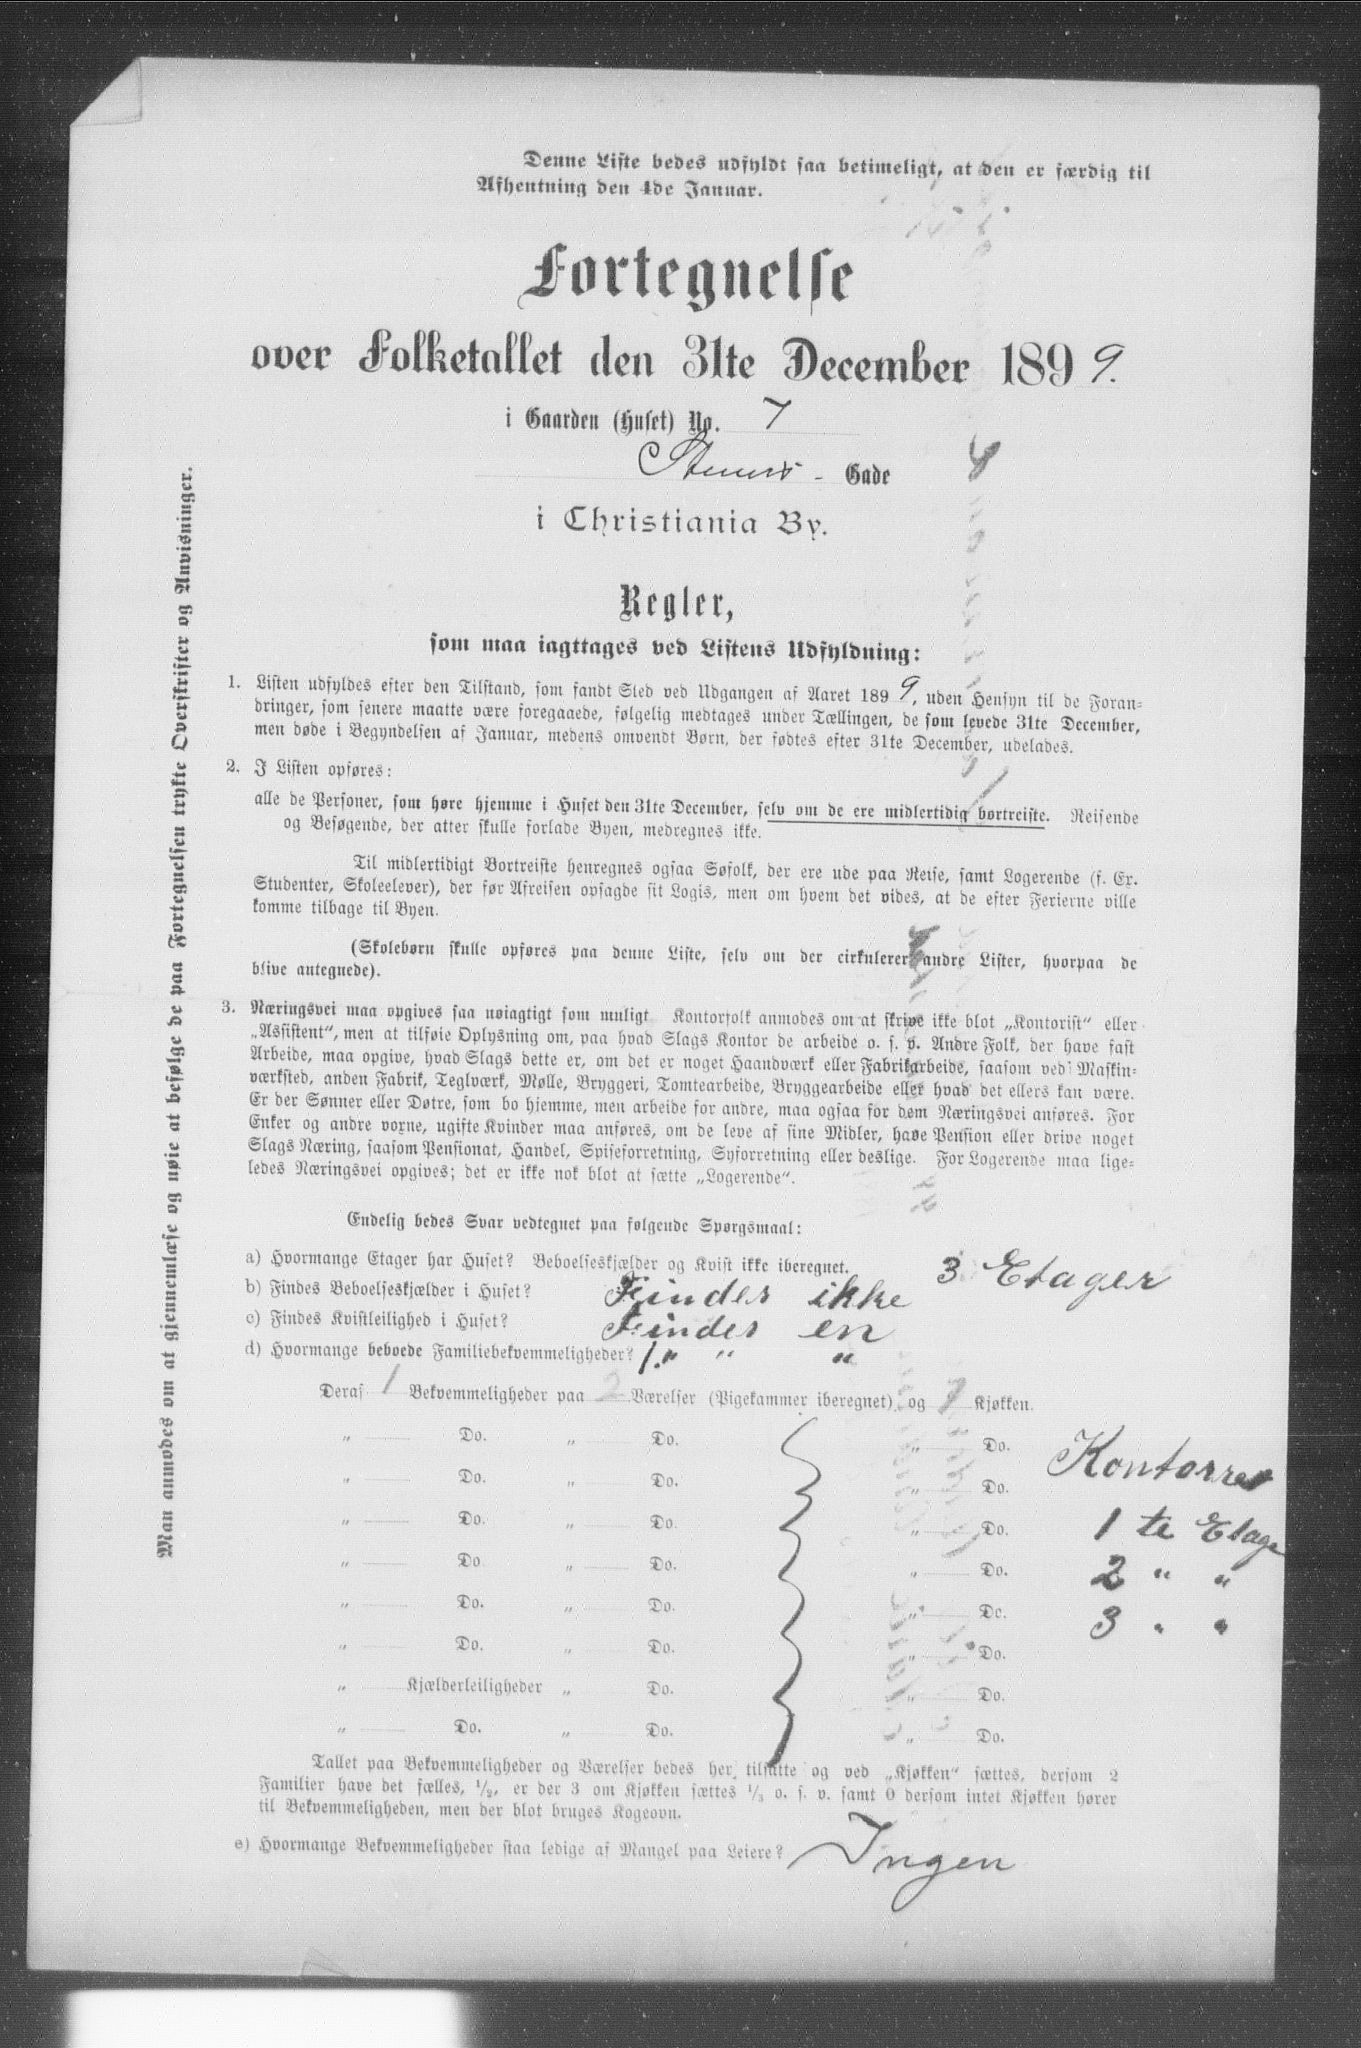 Denne Liste bedes udfyldt saa betimeligt, at den er færdig til
Afhentning den 4de Januar.
Fortegnelse
over Folketallet den 31te December 1899.
i Gaarden (Huset) No. 7
Steners - Gade
i Christiania By.
Regler,
som maa iagttages ved Listens Udfyldning:
1. Listen udfyldes efter den Tilstand, som fandt Sted ved Udgangen af Aaret 1899, uden Hensyn til de Foran-
dringer, som senere maatte være foregaaede, følgelig medtages under Tællingen, de som levede 31te December,
men døde i Begyndelsen af Januar, medens omvendt Børn, der fødtes efter 31te December, udelades.
2. I Listen opføres:
alle de Personer, som høre hjemme i Huset den 31te December, selv om de ere midlertidig bortreiste. Reisende
og Besøgende, der atter skulle forlade Byen, medregnes ikke.
Til midlertidigt Bortreiste henregnes ogsaa Søfolk, der ere ude paa Reise, samt Logerende (f. Ex.
Studenter, Skoleelever), der før Afreisen opsagde sit Logis, men om hvem det vides, at de efter Ferierne ville
komme tilbage til Byen.
(Skolebørn skulle opføres paa denne Liste, selv om der cirkulerer andre Lister, hvorpaa de
blive antegnede).
3. Næringsvei maa opgives saa nøiagtigt som muligt. Kontorfolk anmodes om at skrive ikke blot „Kontorist“ eller
„Assistent“, men at tilføie Oplysning om, paa hvad Slags Kontor de arbeide o. s. v. Andre Folk, der have fast
Arbeide, maa opgive, hvad Slags dette er, om det er noget Haandværk eller Fabrikarbeide, saasom ved Maskin-
værksted, anden Fabrik, Teglværk, Mølle, Bryggeri, Tomtearbeide, Bryggearbeide eller hvad det ellers kan være.
Er der Sønner eller Døtre, som bo hjemme, men arbeide for andre, maa ogsaa for dem Næringsvei anføres. For
Enker og andre voxne, ugifte Kvinder maa anføres, om de leve af sine Midler, have Pension eller drive noget
Slags Næring, saasom Pensionat, Handel, Spiseforretning, Syforretning eller deslige. For Logerende maa lige-
ledes Næringsvei opgives; det er ikke nok blot at sætte „Logerende“.
Endelig bedes Svar vedtegnet paa følgende Spørgsmaal:
a) Hvormange Etager har Huset? Beboelseskjælder og Kvist ikke iberegnet. 3 Etager
b) Findes Beboelseskjælder i Huset? Findes ikke
c) Findes Kvistleilighed i Huset? Findes en
d) Hvormange beboede Familiebekvemmeligheder? 1. " " "
Deraf 1 Bekvemmeligheder paa 2 Værelser (Pigekammer iberegnet) og 1 Kjøkken.
„ Do. „ Do. „ Do. Kontorer
„ Do. „ Do. „ Do.
„ Do. „ Do. „ Do. 1 te Etage
„ Do „ Do. „ Do. 2 " "
„ Do. „ Do. „ Do. 3 " "
„ Do. „ Do. „ Do.
„ Kjælderleiligheder „ Do. „ Do.
„ Do. „ Do. „ Do.
Tallet paa Bekvemmeligheder og Værelser bedes her tilsatte og ved „Kjøkken“ sættes, dersom 2
Familier have det fælles, 1/2, er der 3 om Kjøkken sættes 1/3 o. s. v. samt 0 dersom intet Kjøkken hører
til Bekvemmeligheden, men der blot bruges Kogeovn.
e) Hvormange Bekvemmeligheder staa ledige af Mangel paa Leiere? Ingen
Man anmodes om at gjennemlæse og nøie at befølge de paa Fortegnelsen trykte Overskrifter og Anvisninger.